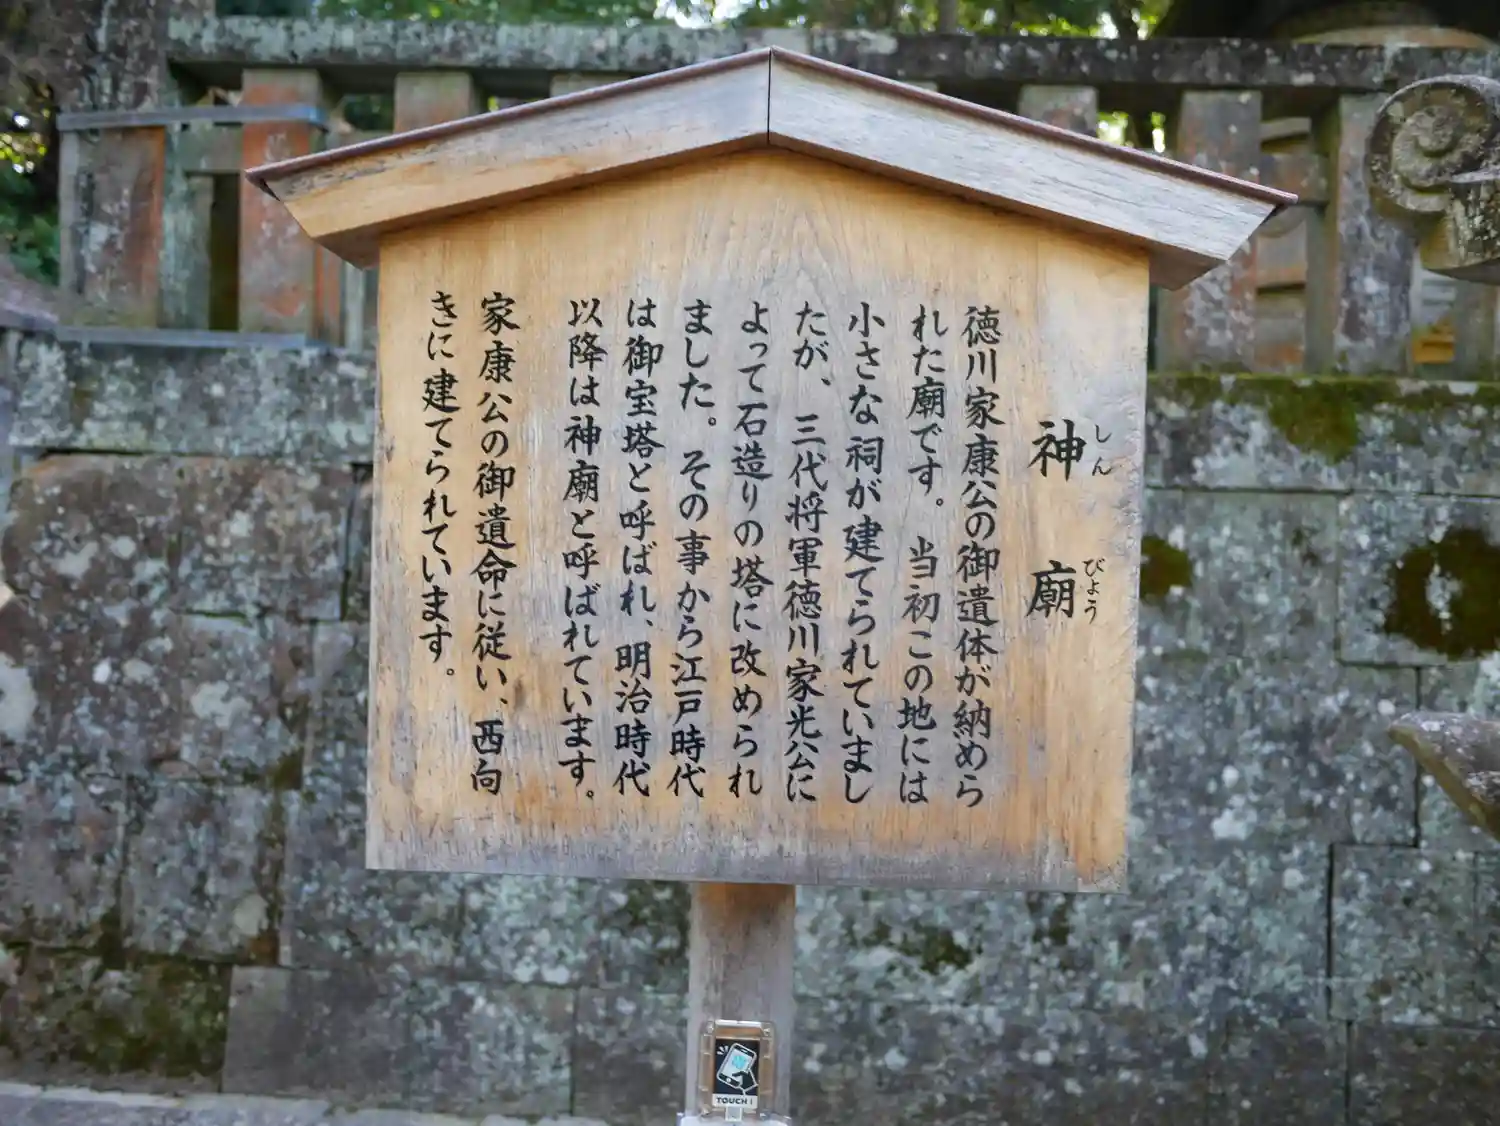 神廟
しんびょう
徳川家康公の御遺体が納めら
れた廟です。当初この地には
小さな祠が建てられていまし
たが、三代将軍徳川家光公に
よって石造りの塔に改められ
ました。その事から江戸時代
は御宝塔と呼ばれ、明治時代
以降は神廟と呼ばれています。
家康公の御遺命に従い、西向
きに建てられています。
TOUCH!